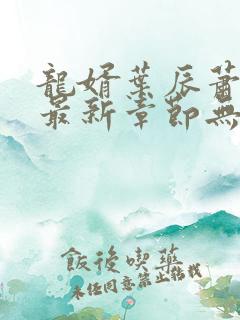 龍婿葉辰蕭
最新章節無
飯後喫藥
未經同意禁止轉載